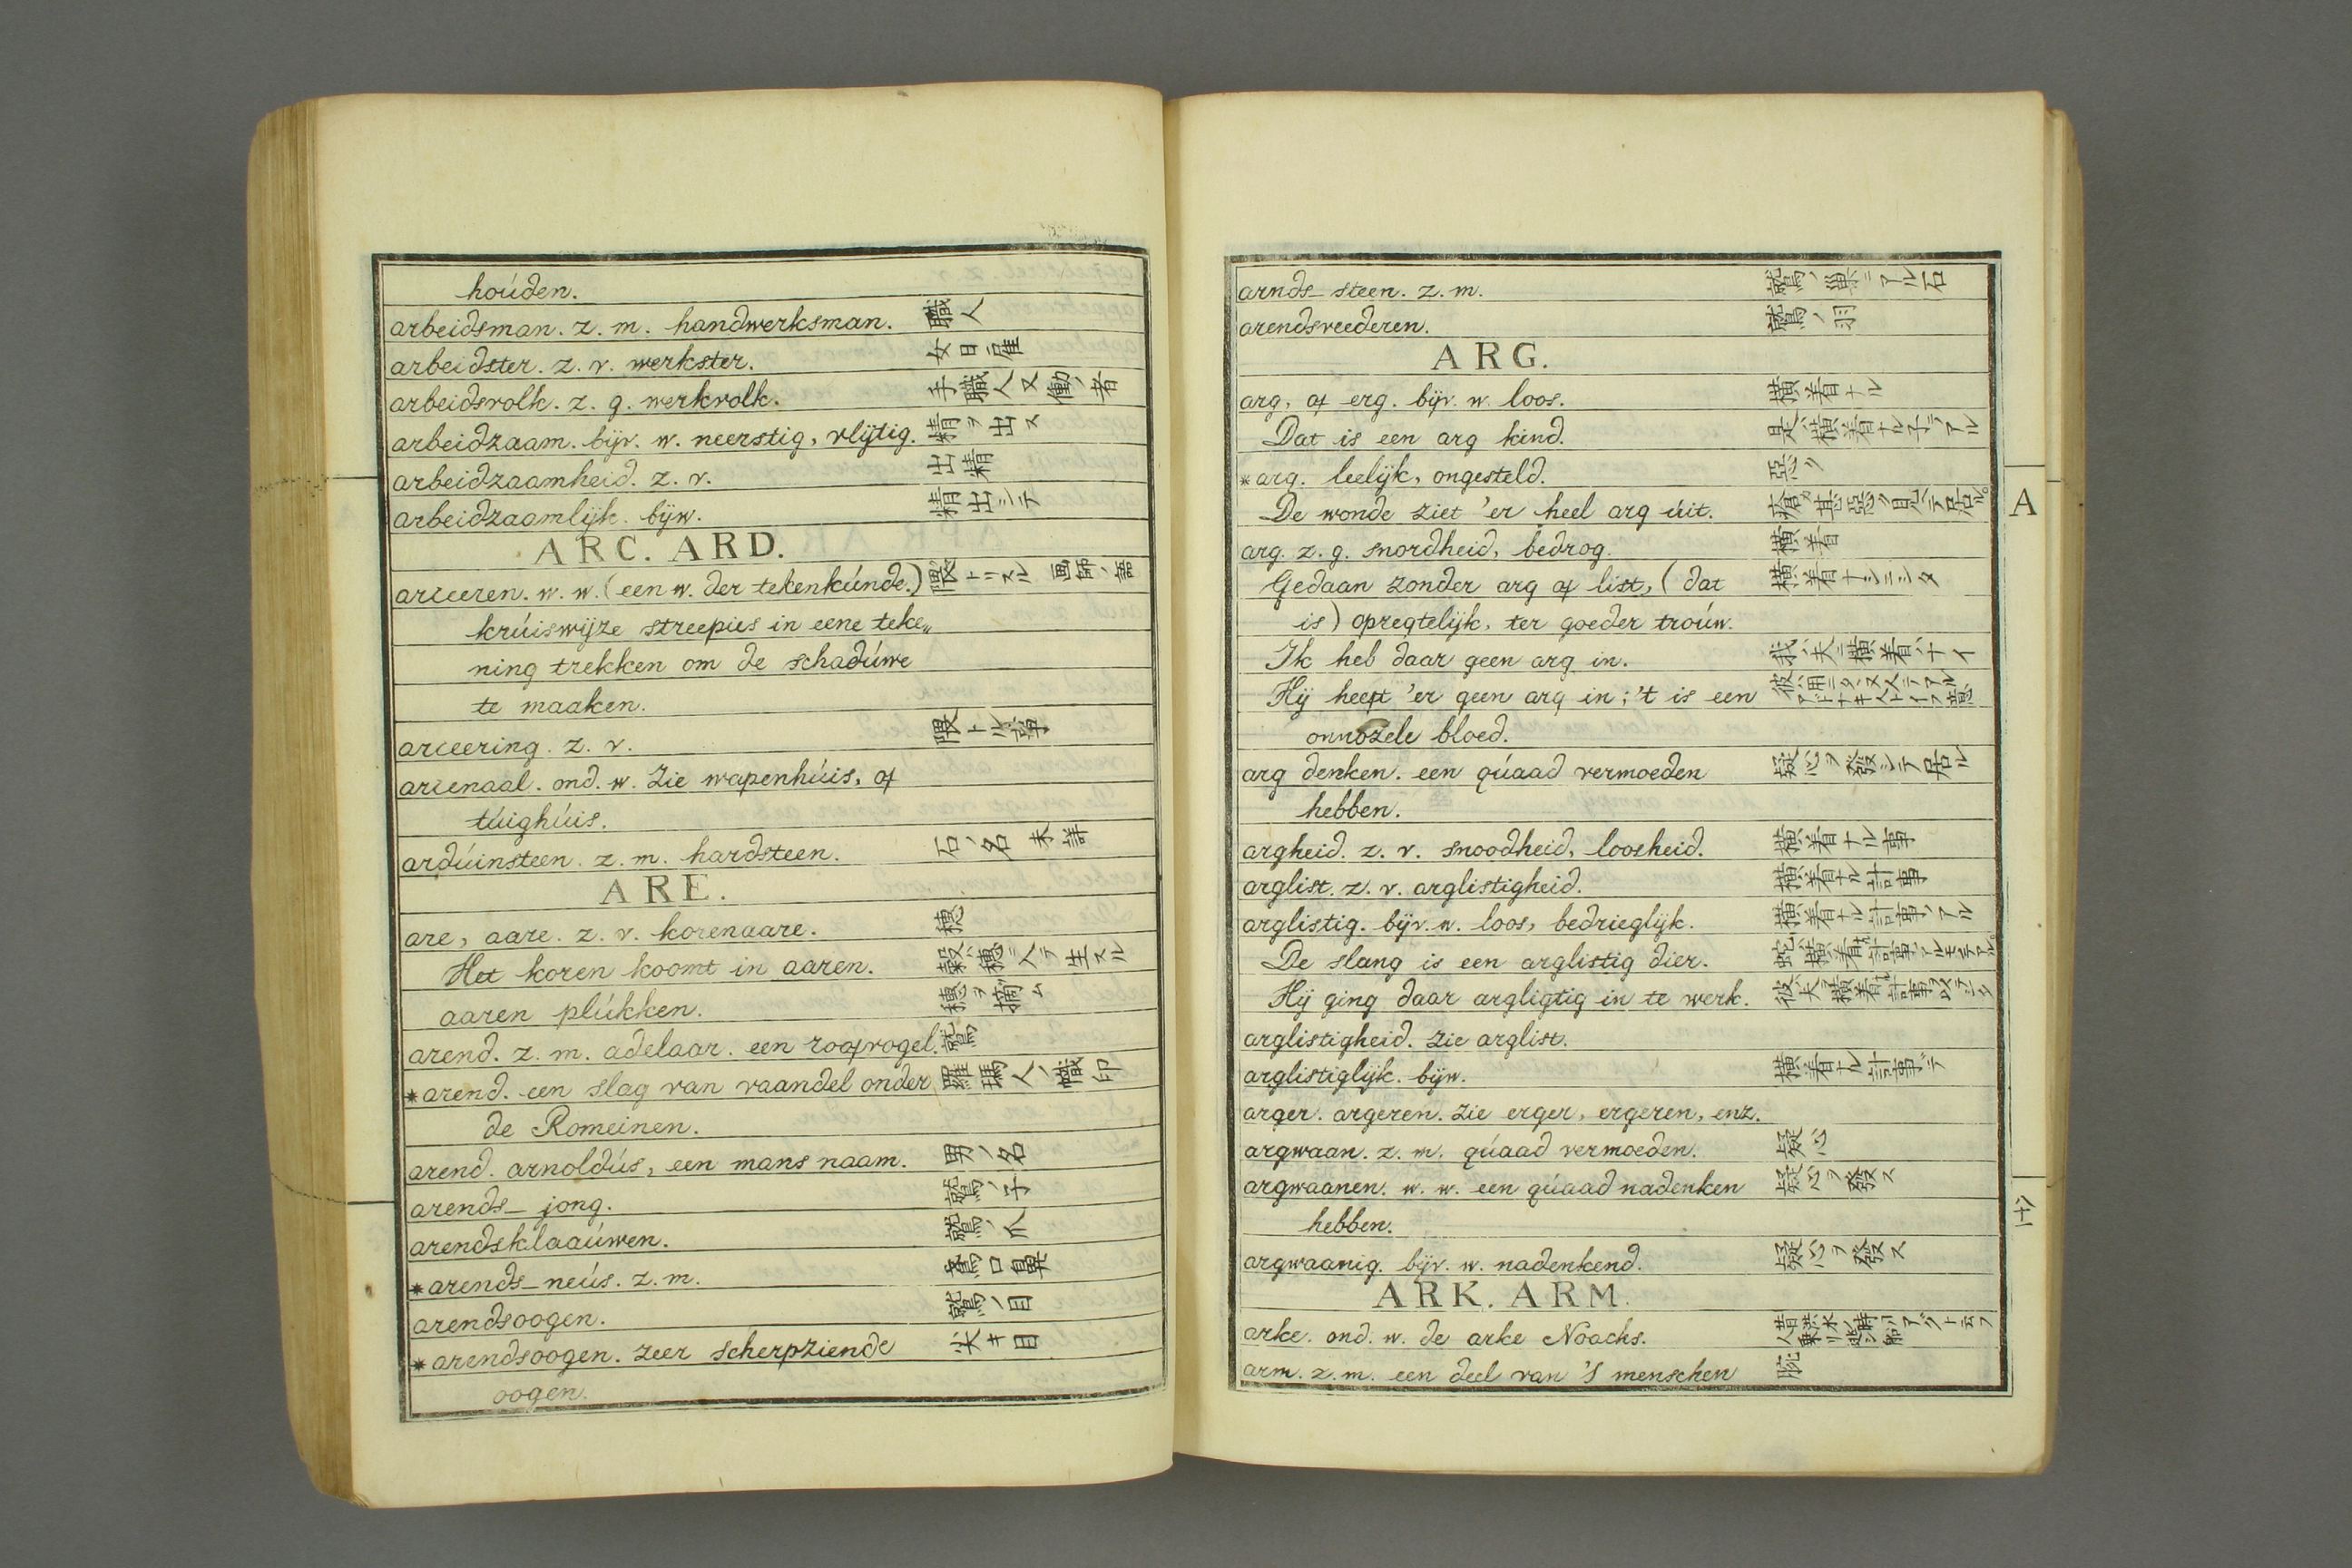 hoúden.
arbeidsman. z. m. handwerksman. 職人
arbeidster. z. v. werkster. 女日雇
arbeidsvolk. z. g. werkvolk. 手職人又働ノ者
arbeidzaam. bijv. w. neerstig, vlijtig. 精ヲ出ス
arbeidzaamheid. z. v. 出精
arbeidzaamlijk. bijw. 精出シテ
ARC. ARD.
arceeren. w. w. (een w. der tekenkúnde.) 隈トリスル 画師ノ語
krúiswijze streepies in eene teke„
ning trekken om de schadúwe
te maaken.
arceering. z. v. 隈トル事
arcenaal. ond. w. zie wapenhúis, of
túighúis.
ardúinsteen. z. m. hardsteen. 石ノ名 未詳
ARE.
are, aare. z. v. korenaare. 穗
Het koren koomt in aaren. 穀ハ穗ニ入テ生スル
aaren plúkken. 穗ヲ摘ム
arend. z. m. adelaar. een roofvogel. 鷲
*arend. een slag van vaandel onder 羅瑪人ノ幟印
de Romeinen.
arend. arnoldús, een mans naam. 男ノ名
arends_ jong. 鷲ノ子
arendsklaaúwen. 鷲ノ爪
*arends_neús. z. m.
arendsoogen. 鷲ノ目
*arendsoogen. zeer scherpziende 尖キ目
oogen.
arnds_ steen. z. m. 鷲ノ巣ニアル石
arendsveederen. 鷲ノ羽
ARG.
arg, of erg. bijv. w. loos. 横着ナル
Dat is een arg kind. 是ハ横着ナル子デアル
*arg. leelijk, ongesteld. 惡ク
De wonde ziet 'er heel arg úit. 瘡ガ甚惡ク見ヘテ居ル。
arg. z. g. snordheid, bedrog. 横着
Gedaan zonder arg of list, (dat 横着ナシニシタ
is) opregtelijk, ter goeder troúw.
Ik heb daar geen arg in. 我ハ夫ニ横着ハナイ
Hij heeft 'er geen arg in; 't is een
onnozele bloed.
arg denken. een qúaad vermoeden 疑心ヲ發シテ居ル
hebben.
argheid. z. v. snoodheid, loosheid. 横着ナル事
arglist. z. v. arglistigheid. 横着ナル計事
arglistig. bijv. w. loos, bedrieglijk. 横着ナル計事ノアル
De slang is een arglistig dier. 蛇ハ横着ナル計事ノアルモノデアル。
Hij ging daar argligtig in te werk.
arglistigheid. zie arglist.
arglistiglijk. bijw. 横着ナル計事デ
arger. argeren. zie erger, ergeren, enz.
argwaan. z. m. qúaad vermoeden. 疑心
argwaanen. w. w. een qúaad nadenken 疑心ヲ發ス
hebben.
argwaanig. bijv. w. nadenkend. 疑心ヲ發ス
ARK. ARM.
arke. ond. w. de arke Noachs.
arm. z. m. een deel van 's menschen 腕
A